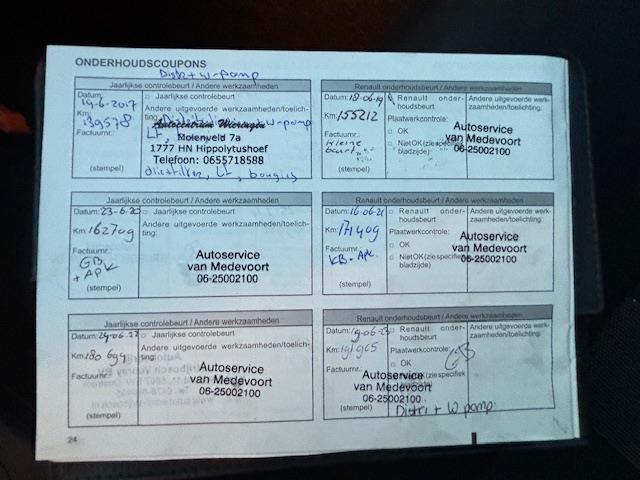 ONDERHOUDSCOUPONS
Distr + w-pomp
Jaarlijkse controlebeurt / Andere werkzaamheden
Datum: 19-6-2017
□ Jaarlijkse controlebeurt
Andere uitgevoerde werkzaamheden/toelich-
ting:
Km: 139578
w-pomp
Autocentrum Wieringen
Factuurnr.:
Molenveld 7a
1777 HN Hippolytushoef
Telefoon: 0655718588
(stempel)
oliefilter, LF, bougies
Renault onderhoudsbeurt / Andere werkzaamheden
Datum: 18-06-19
Renault onder-
houdsbeurt
Andere uitgevoerde werk-
zaamheden/toelichting:
Km: 155212
Plaatwerkcontrole:
□ OK
Factuurnr.:
kleine
beurt
□ Niet OK (zie specifiek
bladzijde)
Autoservice
van Medevoort
06-25002100
(stempel)
Jaarlijkse controlebeurt / Andere werkzaamheden
Datum: 23-6-20
□ Jaarlijkse controlebeurt
Andere uitgevoerde werkzaamheden/toelich-
ting:
Km: 162709
Factuurnr.:
GB
+ APK
Autoservice
van Medevoort
06-25002100
(stempel)
Renault onderhoudsbeurt / Andere werkzaamheden
Datum: 16-06-21
□ Renault onder-
houdsbeurt
Andere uitgevoerde werk-
zaamheden/toelichting:
Km: 171409
Plaatwerkcontrole:
□ OK
Factuurnr.:
KB - APK
□ Niet OK (zie specifiek
bladzijde)
Autoservice
van Medevoort
06-25002100
(stempel)
Jaarlijkse controlebeurt / Andere werkzaamheden
Datum: 24-06-22
□ Jaarlijkse controlebeurt
Andere uitgevoerde werkzaamheden/toelich-
ting:
Km: 180 694
Factuurnr.:
Autoservice
van Medevoort
06-25002100
(stempel)
Renault onderhoudsbeurt / Andere werkzaamheden
Datum: 19-06-23
□ Renault onder-
houdsbeurt
Andere uitgevoerde werk-
zaamheden/toelichting:
Km: 191965
Plaatwerkcontrole:
GB
□ OK
Factuurnr.:
Autoservice
van Medevoort
06-25002100
(stempel)
Distri + W pomp
24